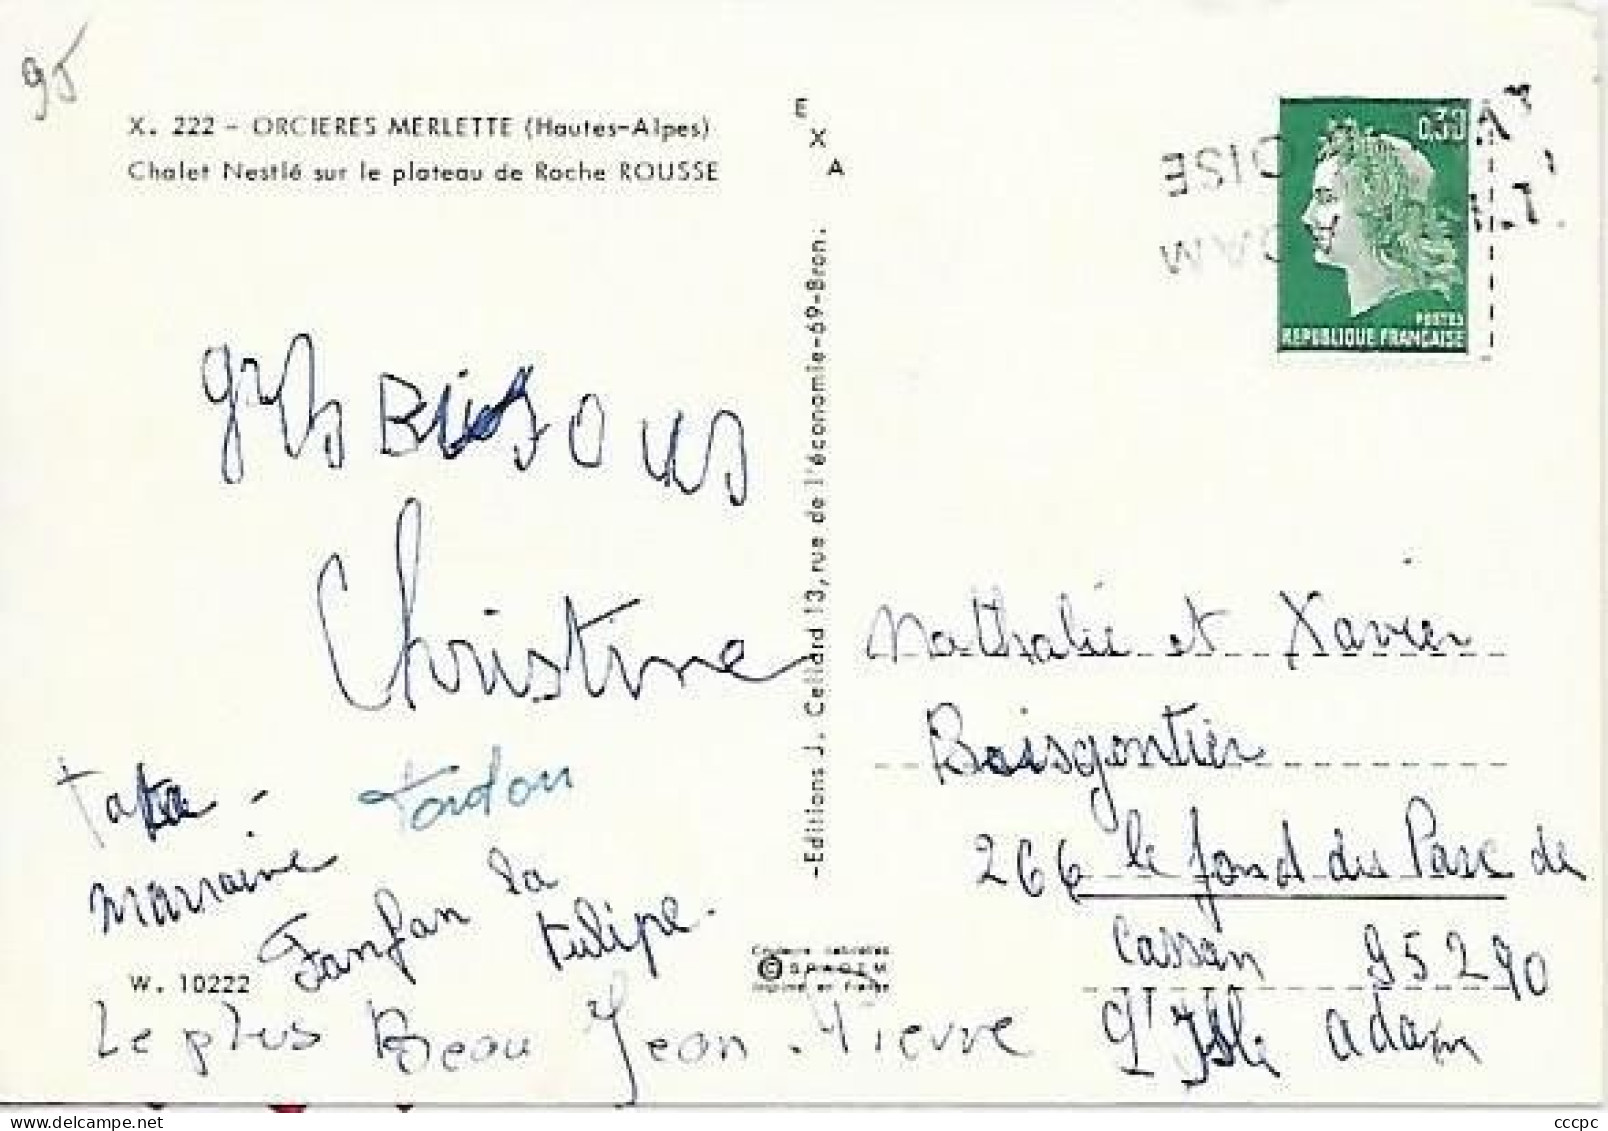 95
X. 222 - ORCIERES MERLETTE (Hautes-Alpes)
Chalet Nestlé sur le plateau de Roche ROUSSE
EXA
0,30
POSTES
REPUBLIQUE FRANÇAISE
grs BISOUS
Christine
Tata - Tonton
Marraine
Fanfan la
tulipe.
W. 10222
Le plus Beau Jean-Pierre
-Editions J. Cellard 13, rue de l'économie-69-Bron.
Couleurs naturelles
© SPADEM
Imprimé en France
Nathalie et Xavier
Boisgontier
266 le fond du Parc de
Cassan 95290
L'Isle adam
cccpc